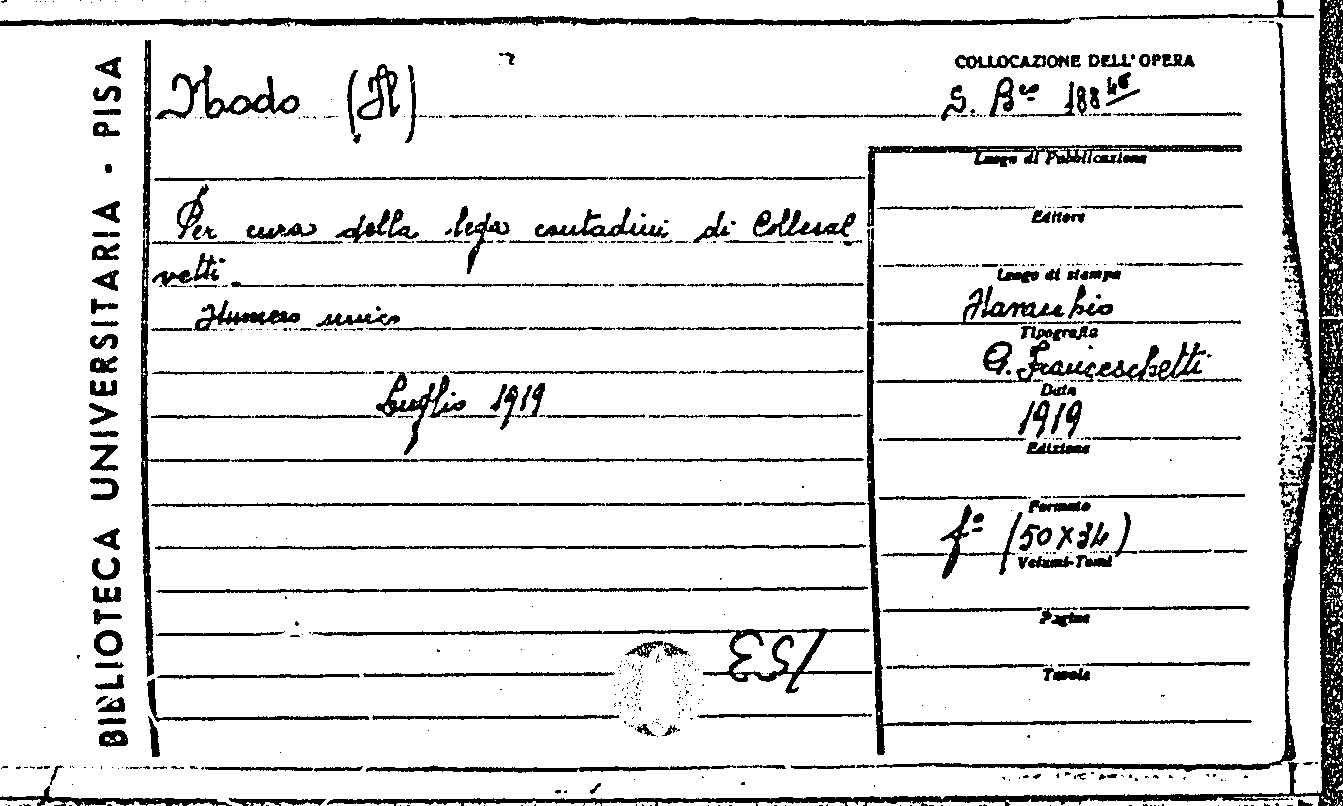 BIBLIOTECA UNIVERSITARIA - PISA
Nodo (Il)
COLLOCAZIONE DELL'OPERA
S. B.co 188 46
Luogo di Pubblicazione
Per cura della lega contadini di Collesal
vetti.
Numero unico
Luglio 1919
Editore
Luogo di stampa
Tipografia
G. Franceschetti
Data
1919
Edizione
Formato
fº (50x34)
Volumi-Tomi
Pagine
Tavole